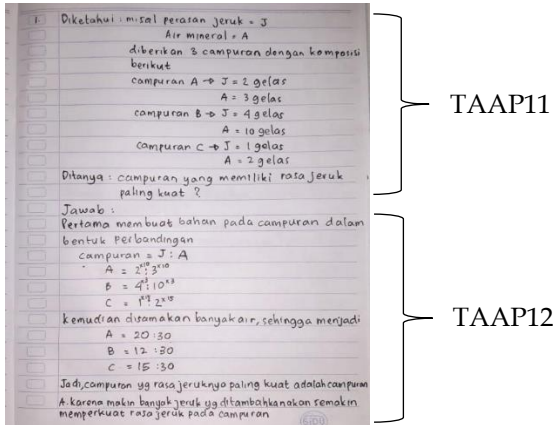 1. Diketahui : misal perasan jeruk = J
Air mineral = A
diberikan 3 campuran dengan komposisi
berikut
campuran A → J = 2 gelas
A = 3 gelas
campuran B → J = 4 gelas
A = 10 gelas
campuran C → J = 1 gelas
A = 2 gelas
Ditanya : campuran yang memiliki rasa jeruk
paling kuat ?
TAAP11
Jawab :
Pertama membuat bahan pada campuran dalam
bentuk perbandingan
campuran = J : A
A = 2×10 : 3×10
B = 4×3 : 10×3
C = 1×15 : 2×15
kemudian disamakan banyak air, sehingga menjadi
A = 20 : 30
B = 12 : 30
C = 15 : 30
Jadi, campuran yg rasa jeruknya paling kuat adalah campuran
A. karena makin banyak jeruk yg ditambahkan akan semakin
memperkuat rasa jeruk pada campuran
TAAP12